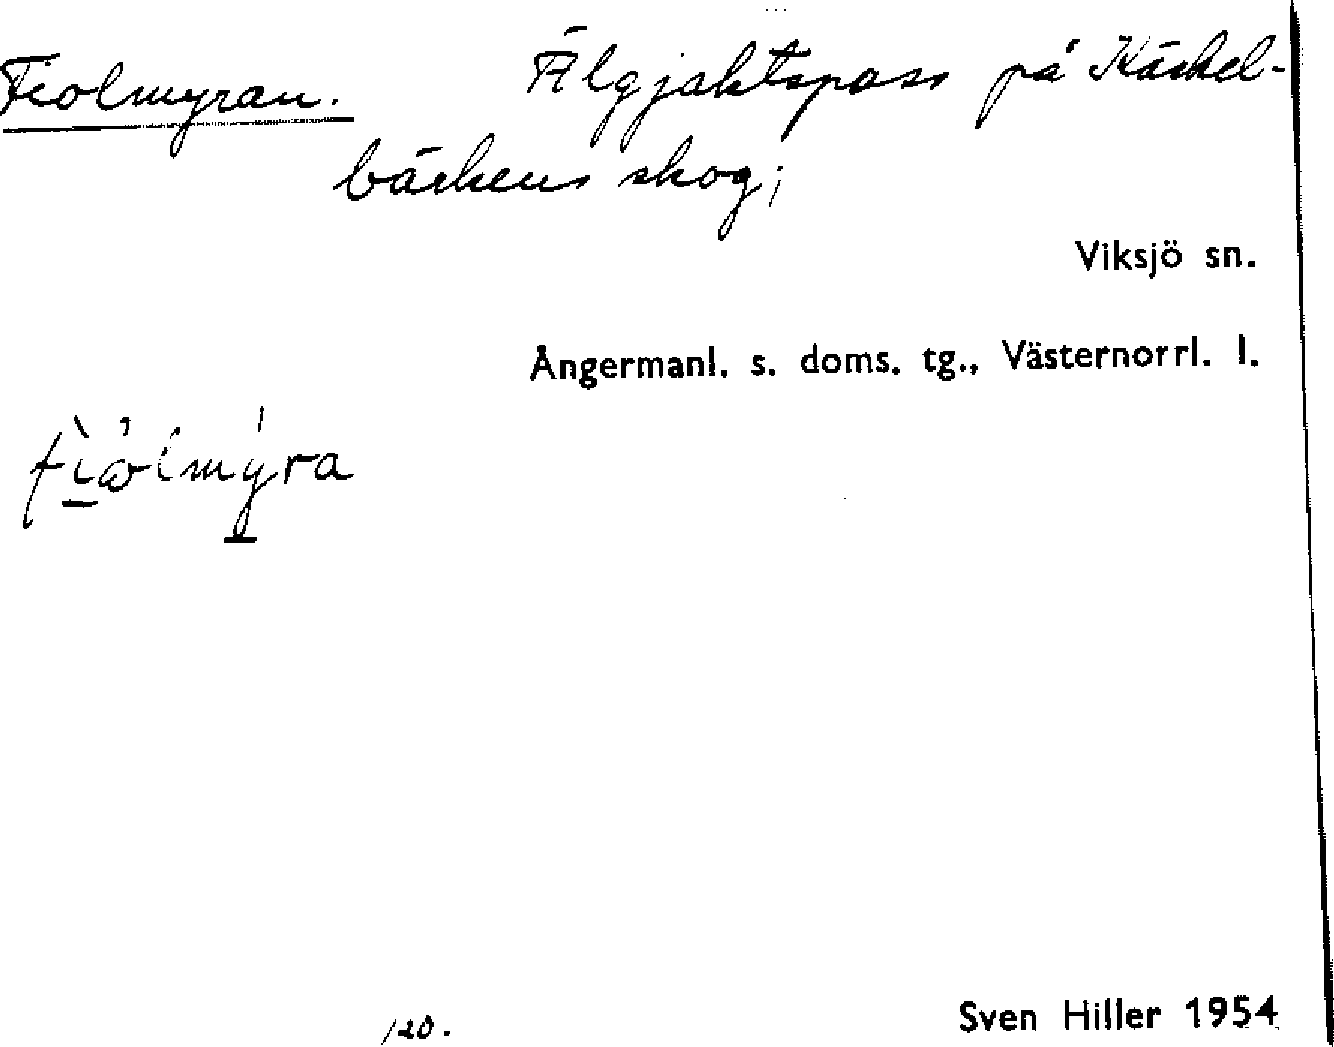 Fiolmyran. Älgjaktspass på Käskel-
bäckens skog;
Viksjö sn.
Ångermanl. s. doms. tg., Västernorrl. l.
fìålmyra
120.
Sven Hiller 1954